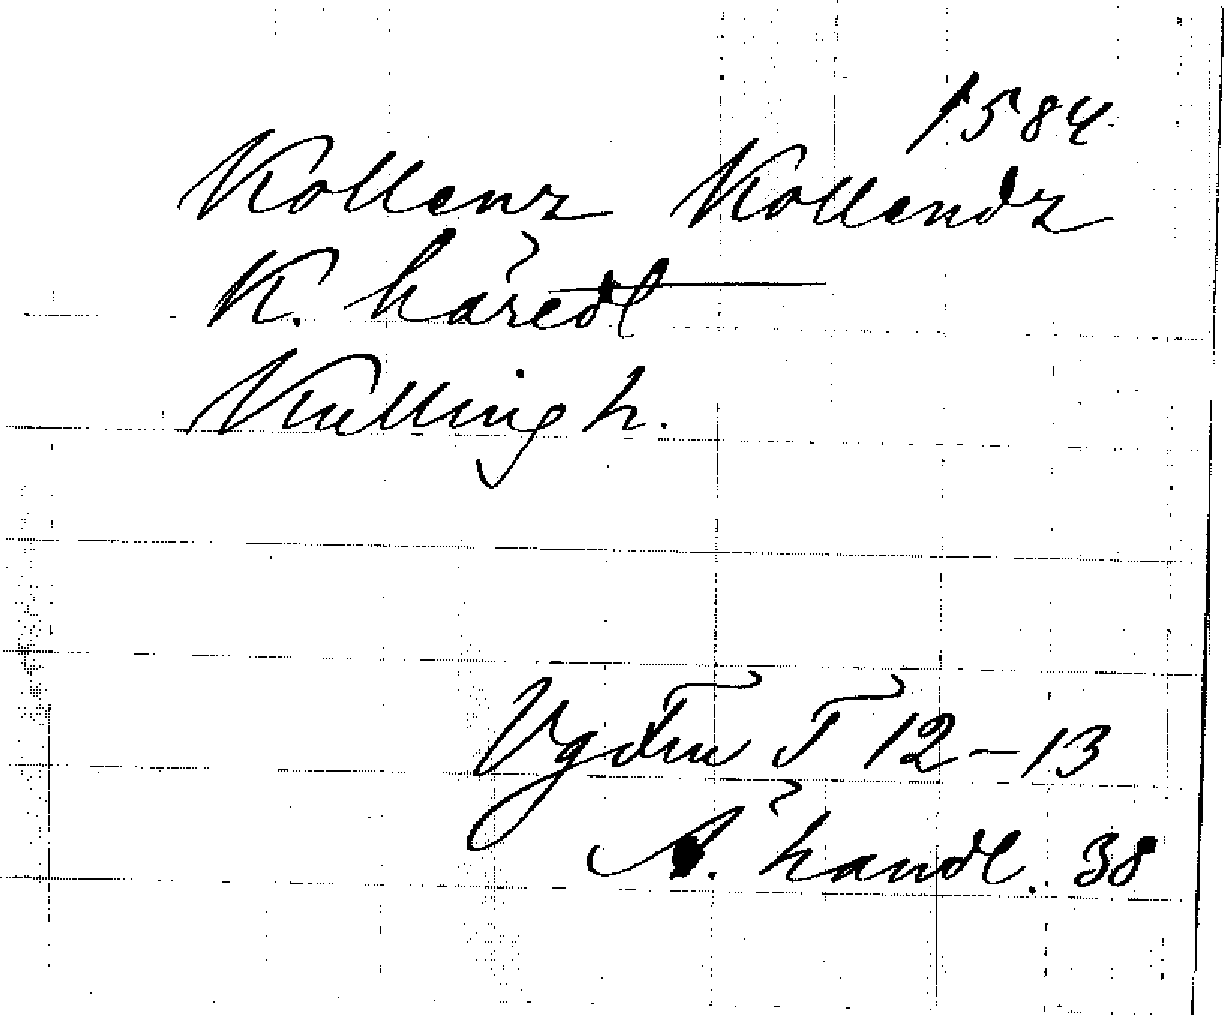 1584
Kollenz Kollendz
K. häredt
Kulling h.
Vgdru T 12-13
A. handl. 38